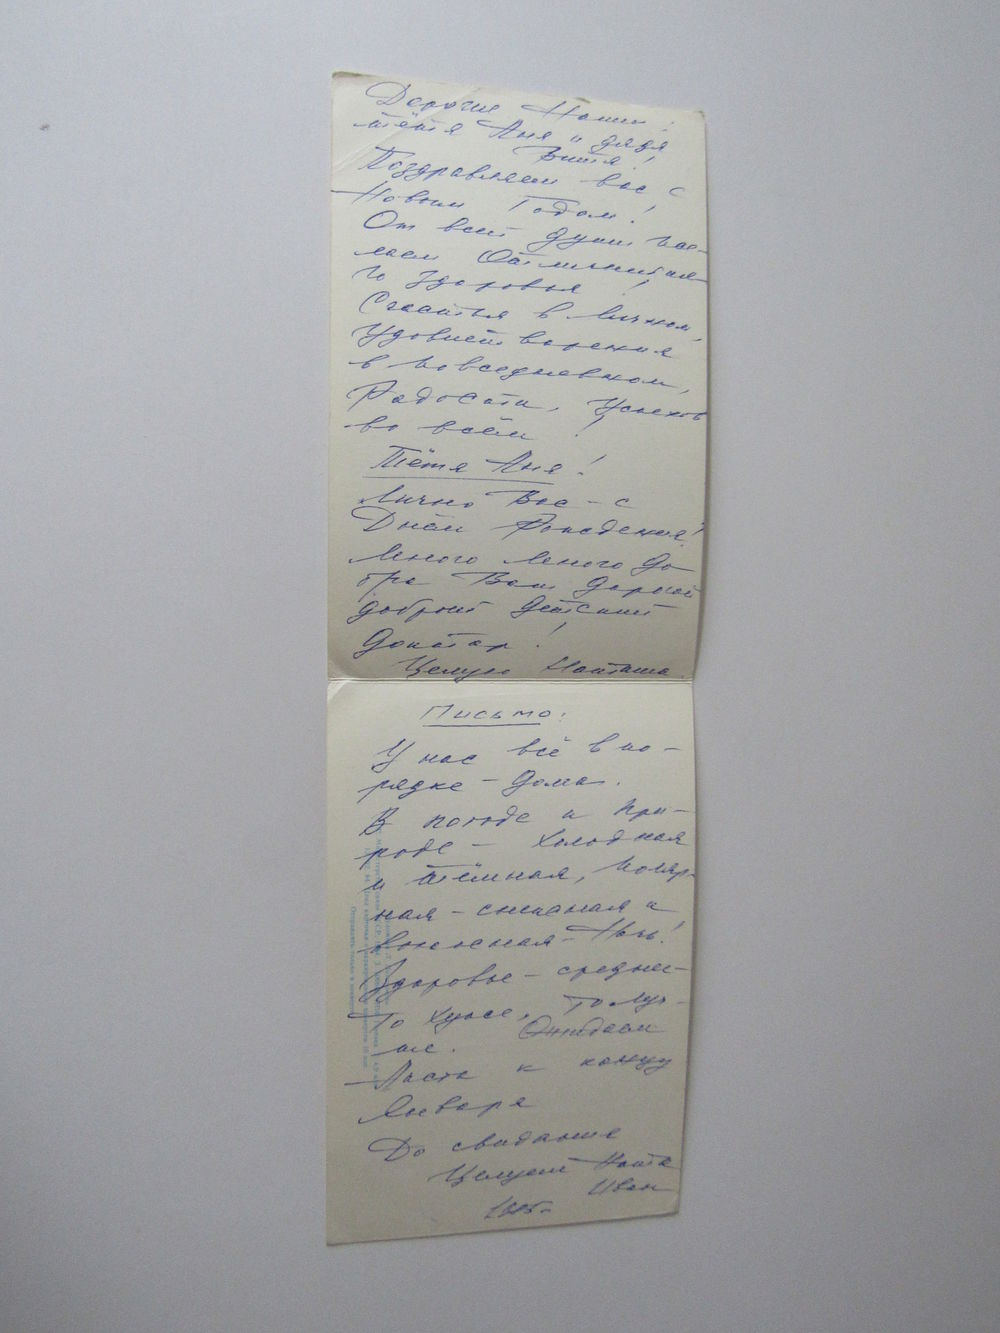 Дорогие Наши!
тётя Аня и дядя
Витя!
Поздравляем вас с
Новым Годом!
От всей души жел-
лаем Отличнитель-
го здоровья!
Счастья в личном,
Удовлетворения
в повседневном,
Радости, Успехов
во всём!
Тётя Аня!
Лично Вас - с
Днём Рождения!
Много много до-
бра Вам дорогой
добрый детский
доктор!
Целую Наташа.
Письмо:
У нас всё в по-
рядке - дома.
В погоде и при-
роде - холодная
и тёмная, поляр-
ная - снежная и
вьюжная - Ночь!
Здоровье - среднее -
То хуже, то луч-
ше. Ожидаем
к концу
Января
До свидание
Целуем Ната
Иван
Отправлять только в конверте